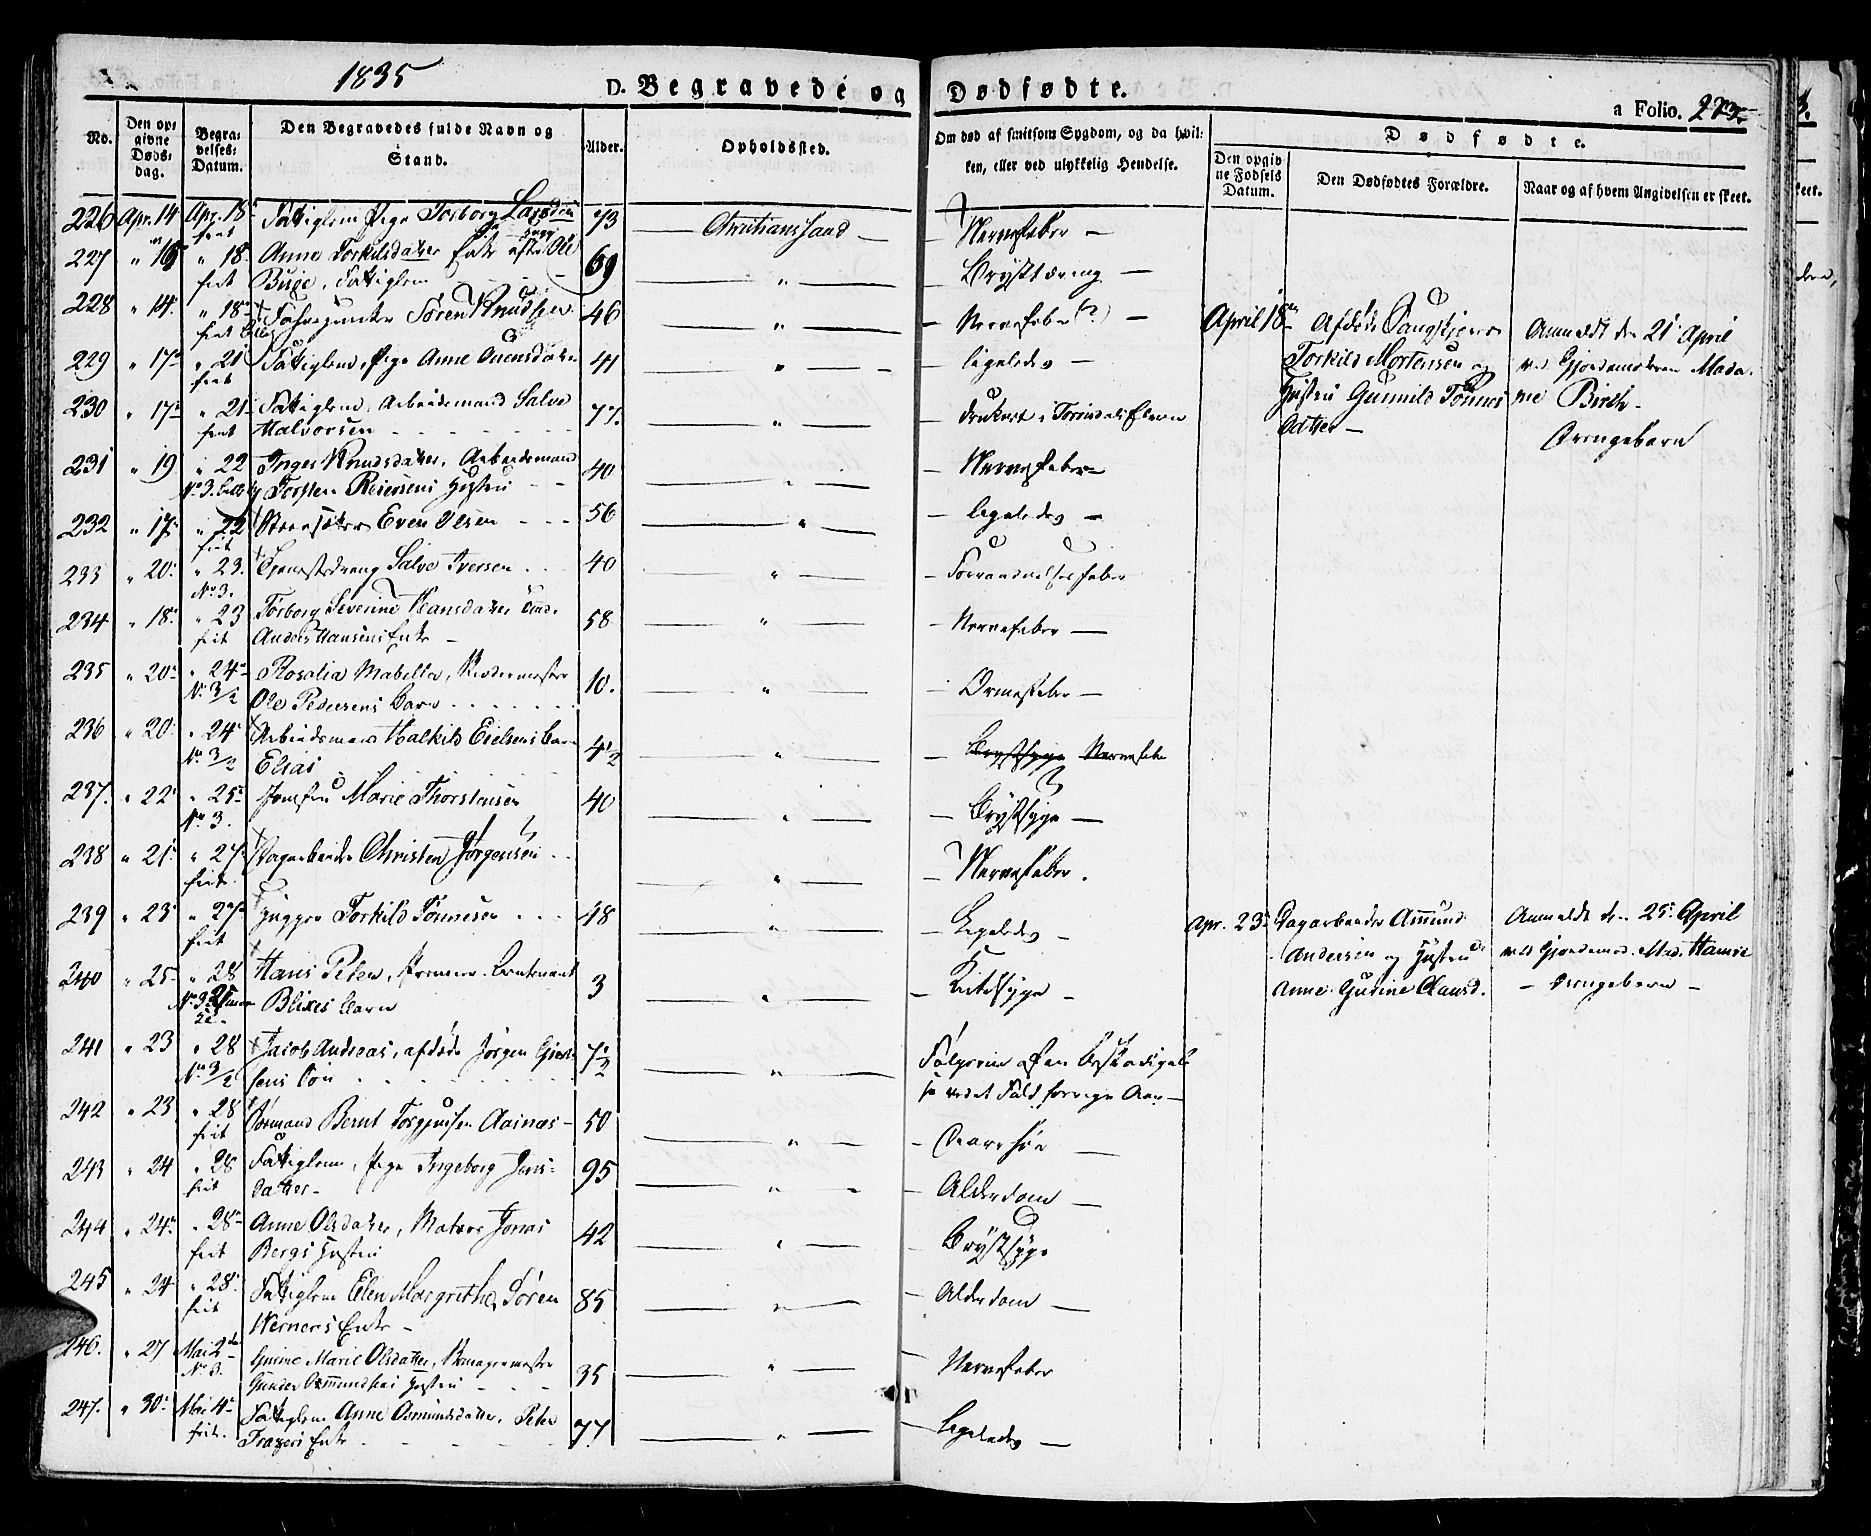 1835
D. Begravede og Dødfødte.
a Folio. 273.
No.
Den opgivne Døds-dag.
Begravelses-Datum.
Den Begravedes fulde Navn og Stand.
Alder.
Opholdssted.
Om død af smitsom Sygdom, og da hvilken, eller ved ulykkelig Hendelse.
Dødfødte.
Den opgivne Fødsels Datum.
Den Dødfødtes Forældre.
Naar og af hvem Angivelsen er skeet.
226 Apr. 14 Apr. 18 Fattiglem Pige Torborg Larsda 73 Christianssand Nervefeber
227 " 16 " 18 Anne Torkildsdatter Enke efter Ole 69 " Brysttæring
frit Birge, Fattiglem
228 " 14 " 18 Søren Knudsen 46 " Nervefeber (?)
229 " 17 " 21 Fattiglem, Pige Anne Ouensdatter 41 " ligeledes
frit
230 " 17 " 21 Fattiglem, Arbeidsmand Salve 77 " druknet i Torridals Elven
frit Halvorsen
231 " 19 " 22 Inger Knudsdatter, Arbeidsmand 40 " Nervefeber
No 3. Torsten Reiersens Hustru
232 " 17 " 22 Even Olsen 56 " ligeledes
frit
233 " 20 " 23. Tjenestedreng Salve Iversen 40 " Forraadnelsesfeber
No 3.
234 " 18 " 23 Torborg Severine Hansdatter 58 " Nervefeber
frit Anders Hansens Enke
235 " 20 " 24 Rosalia Mabella, 10. " Ormefeber
No 3/2 Ole Pedersens Barn
236 " 20 " 24 Arbeidsmand Halkild Eielsens Barn 4 1/2 " Brystsyge Nervefeber
No 3/2 Elias
237. " 22 " 25 Jomfru Marie Thorstensen 40 " Brystsyge
No 3.
238 " 21 " 27 Dagarbeider Christen Jørgensen " Nervefeber.
frit
239 " 23 " 27 Torkild Tønnesen 48 " Ligeledes
frit
240 " 25 " 28 Hans Peter, Premier-Lieutenant 3 "
No 3 Blixes Barn
241 " 23 " 28 Jacob Andreas, afdøde Jørgen 7 1/2 " Følgerne af en Beskadigel
No 3/2 sens Søn se ved et Fald forrige Aar
242 " 23 " 28 Bernt Torgiusen Aainæs 50 "
frit
243 " 24 " 28 Fattiglem, Pige Ingeborg Jens- 95 " Alderdom
frit datter
244 " 24 " 28 Anne Olsdatter, Matros Jonas 42 " Brystsyge
frit Bergs Hustru
245 " 24 " 28 Fattiglem Elen Margrethe, Søren 85 " Alderdom
frit Werners Enke
246. " 27 Mai 2 Gurine Marie Olsdatter, 35 " Nervefeber
No 3. Gunder Osmundsens Hustru
247. " 30 Mai 4 Fattiglem Anne Osmundsdatter, Peter 77 " Ligeledes
frit. Trageri Enke
April 18 Afdøde
Torkild Mortensen og
Hustru Gunnild Tønnes
datter
Anmeldt den 21 April
ved Gjordemoderen Mada-
me Birch.
Drengebarn
Apr. 23 Dagarbeider Amund
Andersen og Hustru
Anne Gurine Clausd.
Anmeldt den 25 April
ved Gjordemod. Mad. Hansen
Drengebarn